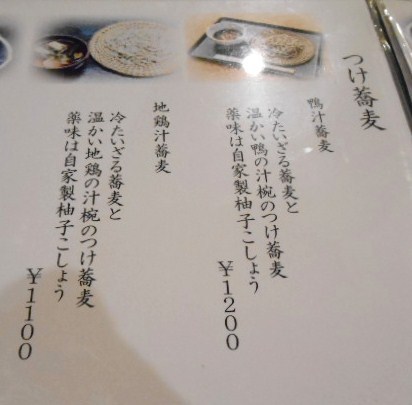 つけ蕎麦
鴨汁蕎麦
冷たいざる蕎麦と
温かい鴨の汁椀のつけ蕎麦
薬味は自家製柚子こしょう
¥1200
地鶏汁蕎麦
冷たいざる蕎麦と
温かい地鶏の汁椀のつけ蕎麦
薬味は自家製柚子こしょう
¥1100